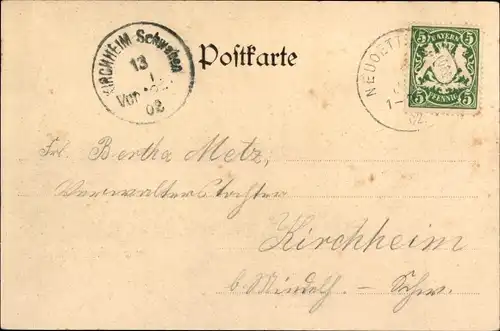 KIRCHHEIM Schwaben
13
1
Vor
02
Postkarte
NEUOETT
1-
02
BAYERN
5 5
5 PFENNIG 5
Frl. Bertha Metz,
Verwalterstochter
Kirchheim
b. Mindelh. - Schw.